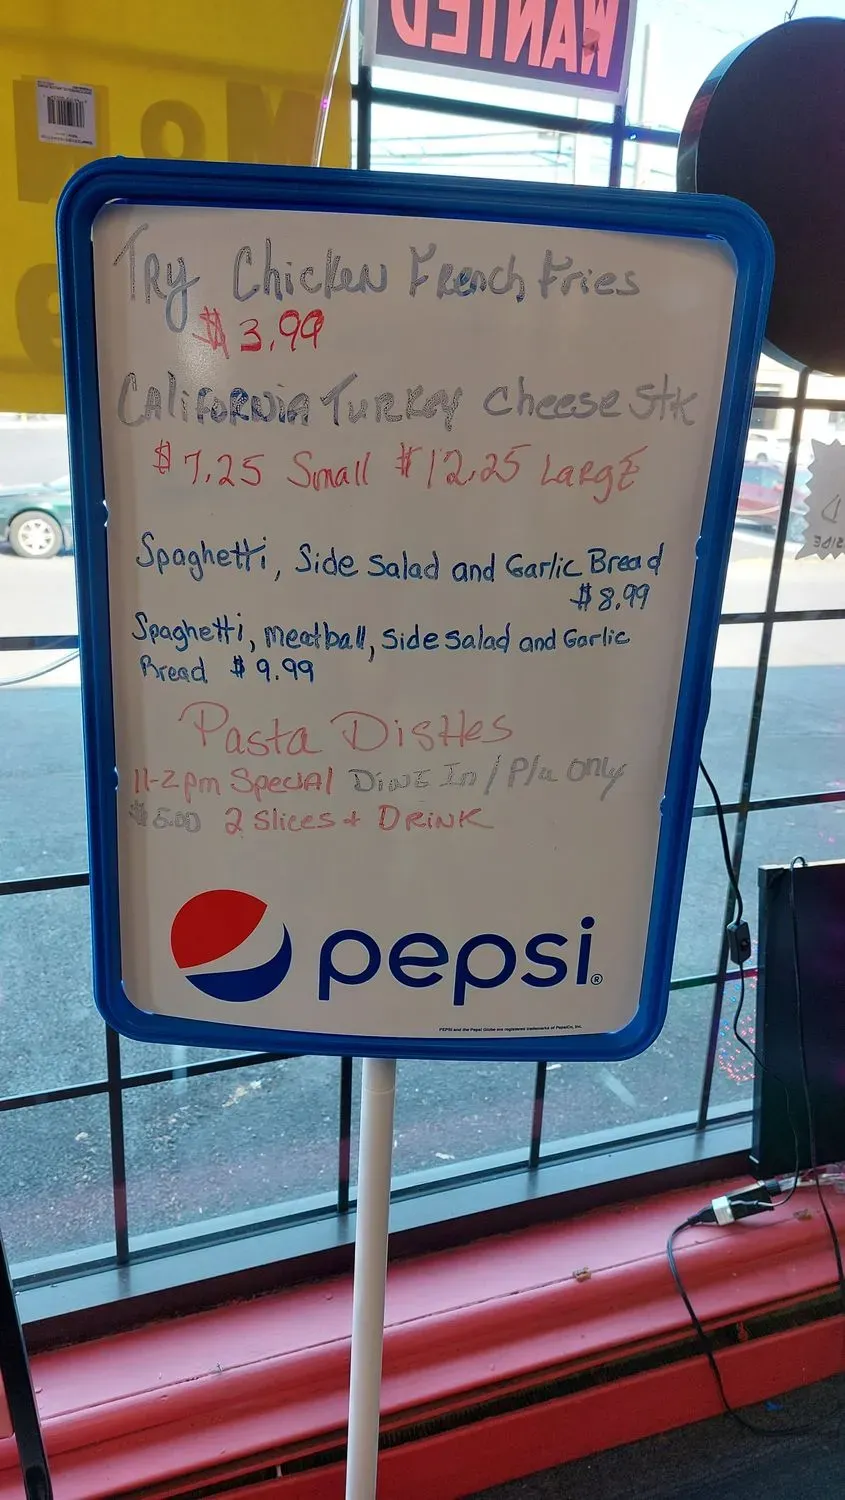 WANTED
Try Chicken French Fries
$3.99
CALiFORNiA TURKEY Cheese Stk
$7.25 Small $12.25 LARGE
Spaghetti, Side Salad and Garlic Bread
$8.99
Spaghetti, meatball, Side Salad and Garlic
Bread $9.99
Pasta DisHes
11-2pm SpeciAl DiNE In / P/u only
2 Slices + DRiNK
pepsi®
PEPSI and the Pepsi Globe are registered trademarks of PepsiCo, Inc.